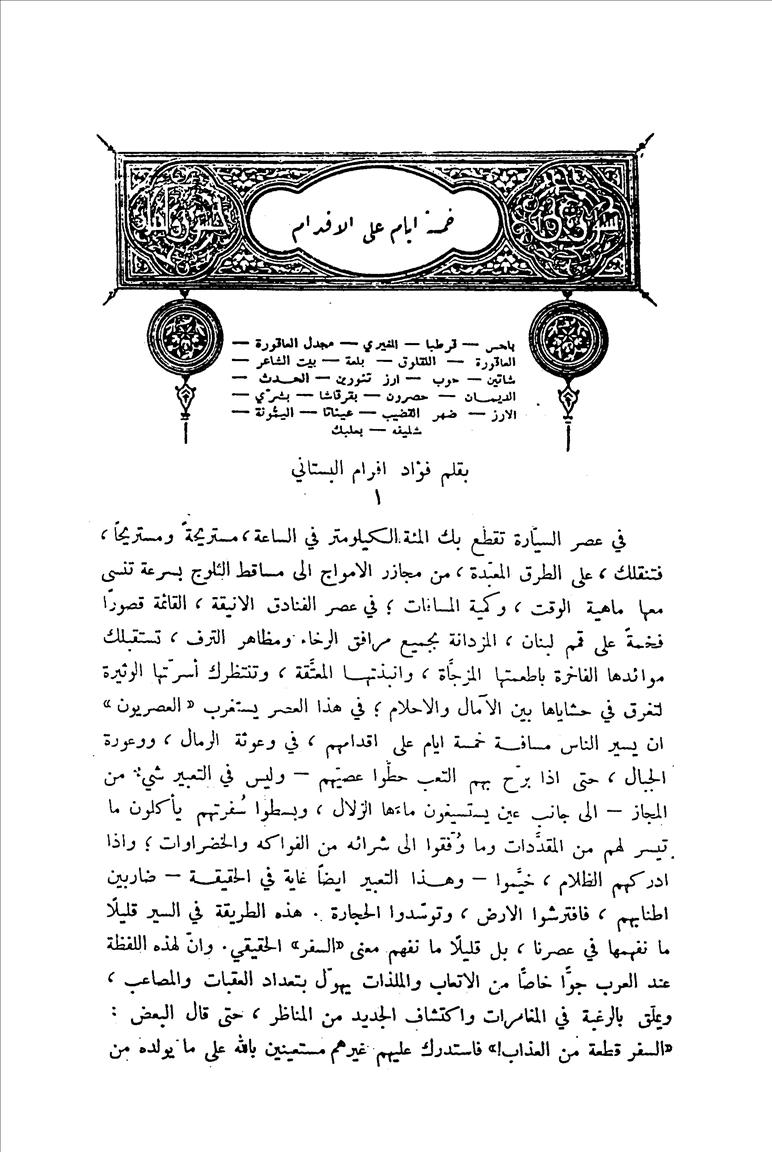 خمسة ايام على الاقدام
— قرطبا — المغيري — مجدل العاقورة —
العاقورة — اللقلوق — بلعة — بيت الشاعر —
شاتين — حوب — ارز تنورين — الحدث —
الديمان — حصرون — بقرقاشا — بشرّي —
الارز — ضهر القضيب — عيناتا — اليمّونة —
شليفه — بعلبك
بقلم فؤاد افرام البستاني
١
في عصر السيّارة تقطع بك المئة الكيلومتر في الساعة، مستريحةً ومستريحاً،
فتنقلك، على الطرق المعبّدة، من مجازر الامواج الى مساقط الثلوج بسرعة تنسى
معها ماهية الوقت، وكمية المسافات؛ في عصر الفنادق الانيقة، القائمة قصورًا
فخمةً على قمم لبنان، المزدانة بجميع مرافق الرخاء ومظاهر الترف، تستقبلك
موائدها الفاخرة باطعمتها المزجَّاة، وانبذتهـا المعتَّقة، وتنتظرك أسرّتها الوثيرة
لتغرق في حشاياها بين الآمال والاحلام؛ في هذا العصر يستغرب «العصريون»
ان يسير الناس مسافة خمسة ايام على اقدامهم، في وعوثة الرمال، ووعورة
الجبال، حتى اذا برّح بهم التعب حطّوا عصيّهم — وليس في التعبير شيء من
المجاز — الى جانب عين يستسيغون ماءَها الزلال، وبسطوا سُفرتهم يأكلون ما
تيسر لهم من المقدَّدات وما وُفّقوا الى شرائه من الفواكه والخضراوات؛ واذا
ادركهم الظلام، خيَّموا — وهـذا التعبير ايضاً غاية في الحقيقـة — ضاربين
اطنابهم، فافترشوا الارض، وتوسّدوا الحجارة. هذه الطريقة في السير قليلًا
ما نفهمها في عصرنا، بل قليلًا ما نفهم معنى «السفر» الحقيقي. وانّ لهذه اللفظة
عند العرب جوًّا خاصًّا من الاتعاب والملذات يهوّل بتعداد العقبات والمصاعب،
ويملّق بالرغبة في المغامرات واكتشاف الجديد من المناظر، حتى قال البعض:
«السفر قطعة من العذاب!» فاستدرك عليهم غيرهم مستعينين بالله على ما يولده من